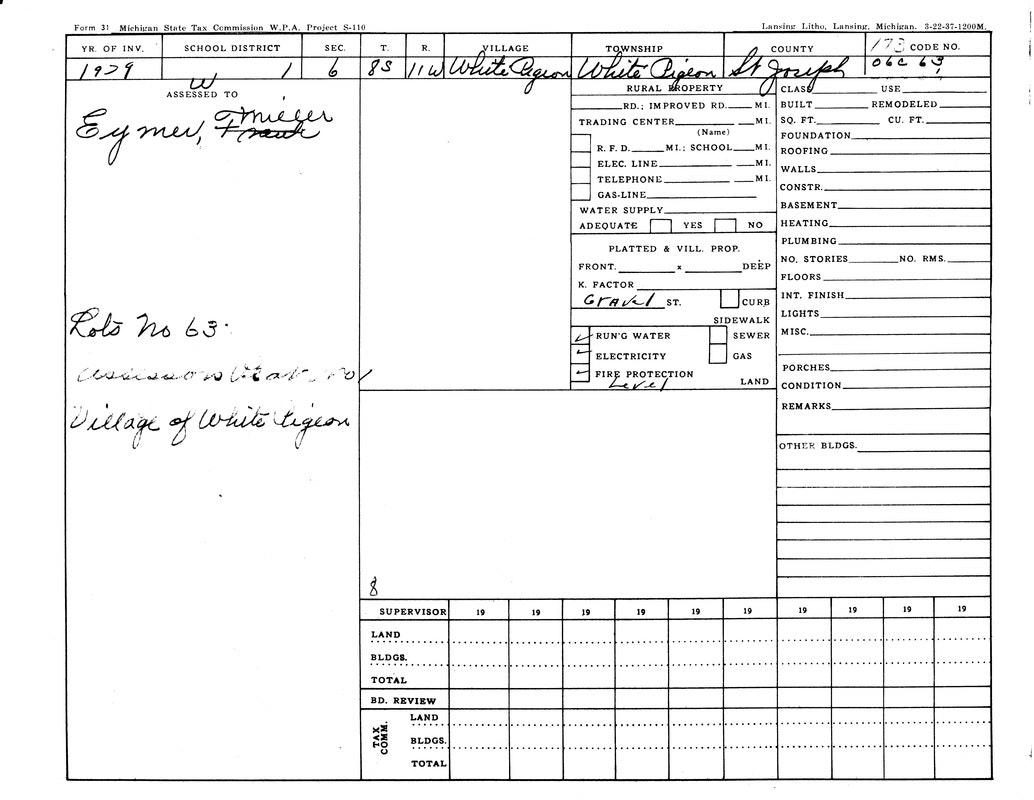 Form 31 Michigan State Tax Commission W.P.A. Project S-110
Lansing Litho, Lansing, Michigan. 3-22-37-1200M.
YR. OF INV. SCHOOL DISTRICT SEC. T. R. VILLAGE TOWNSHIP COUNTY 173 CODE NO.
W 1 6 8S 11W White Pigeon White Pigeon St Joseph 06C 63
ASSESSED TO
Eymer, Frank
Lots No 63.
No 1
Village of White Pigeon
RURAL PROPERTY
RD.; IMPROVED RD. MI.
TRADING CENTER MI.
(Name)
R. F. D. MI.; SCHOOL MI.
ELEC. LINE MI.
TELEPHONE MI.
GAS-LINE
WATER SUPPLY
ADEQUATE YES NO
PLATTED & VILL. PROP.
FRONT. x DEEP
K. FACTOR
Gravel ST. CURB
SIDEWALK
RUN'G WATER SEWER
ELECTRICITY GAS
FIRE PROTECTION
Level LAND
CLASS USE
BUILT REMODELED
SQ. FT. CU. FT.
FOUNDATION
ROOFING
WALLS
CONSTR.
BASEMENT
HEATING
PLUMBING
NO. STORIES NO. RMS.
FLOORS
INT. FINISH
LIGHTS
MISC.
PORCHES
CONDITION
REMARKS
OTHER BLDGS.
8
SUPERVISOR 19 19 19 19 19 19 19 19 19 19
LAND
BLDGS.
TOTAL
BD. REVIEW
TAX COMM.
LAND
BLDGS.
TOTAL